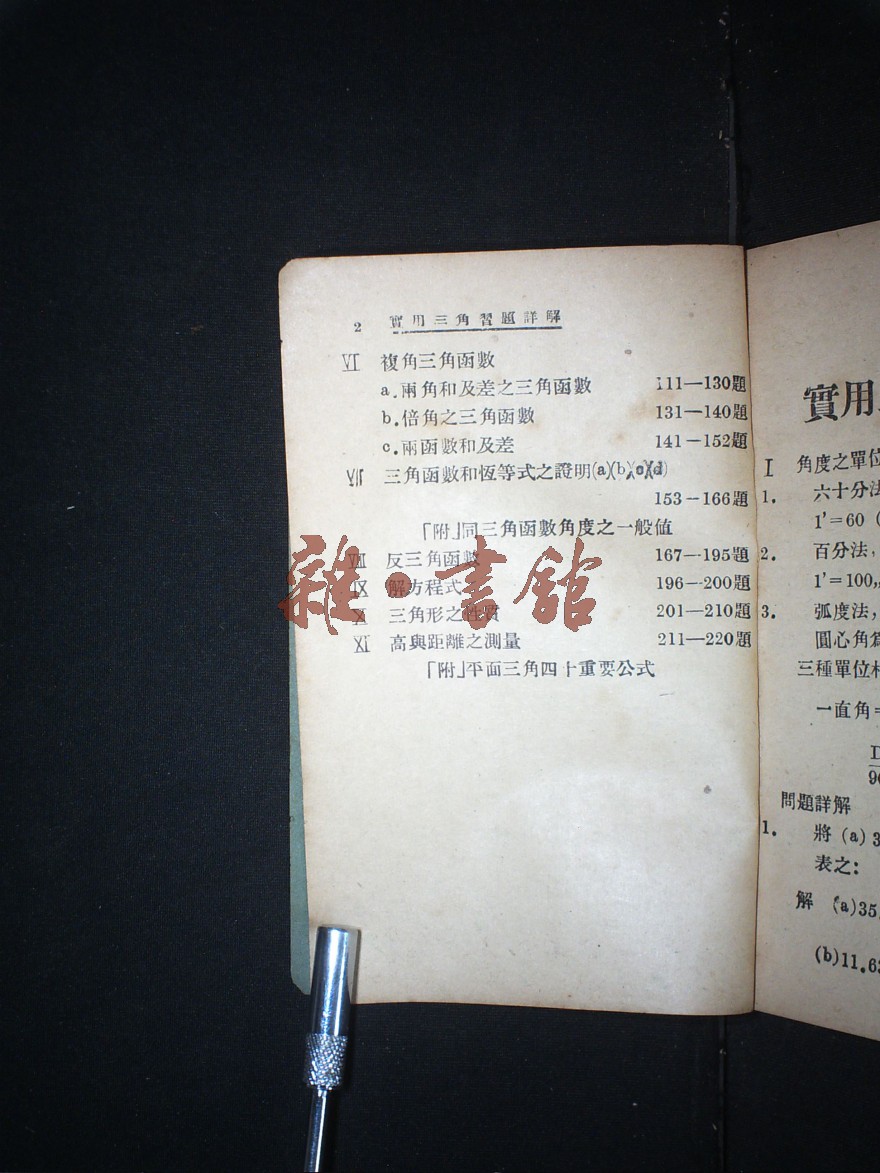 2 實用三角習題詳解
VI 複角三角函數
a.兩角和及差之三角函數 111—130題
b.倍角之三角函數 131—140題
c.兩函數和及差 141—152題
VII 三角函數和恆等式之證明(a)(b)(c)(d)
153—166題
「附」同三角函數角度之一般值
VIII 反三角函數 167—195題
IX 解方程式 196—200題
X 三角形之性質 201—210題
XI 高與距離之測量 211—220題
「附」平面三角四十重要公式
雜·書館
實用
I 角度之單位
1. 六十分法
1'=60 (
2. 百分法,
1'=100,
3. 弧度法,
圓心角為
三種單位
一直角=
D
90
問題詳解
1. 將 (a) 3
表之:
解 (a)35
(b)11.63